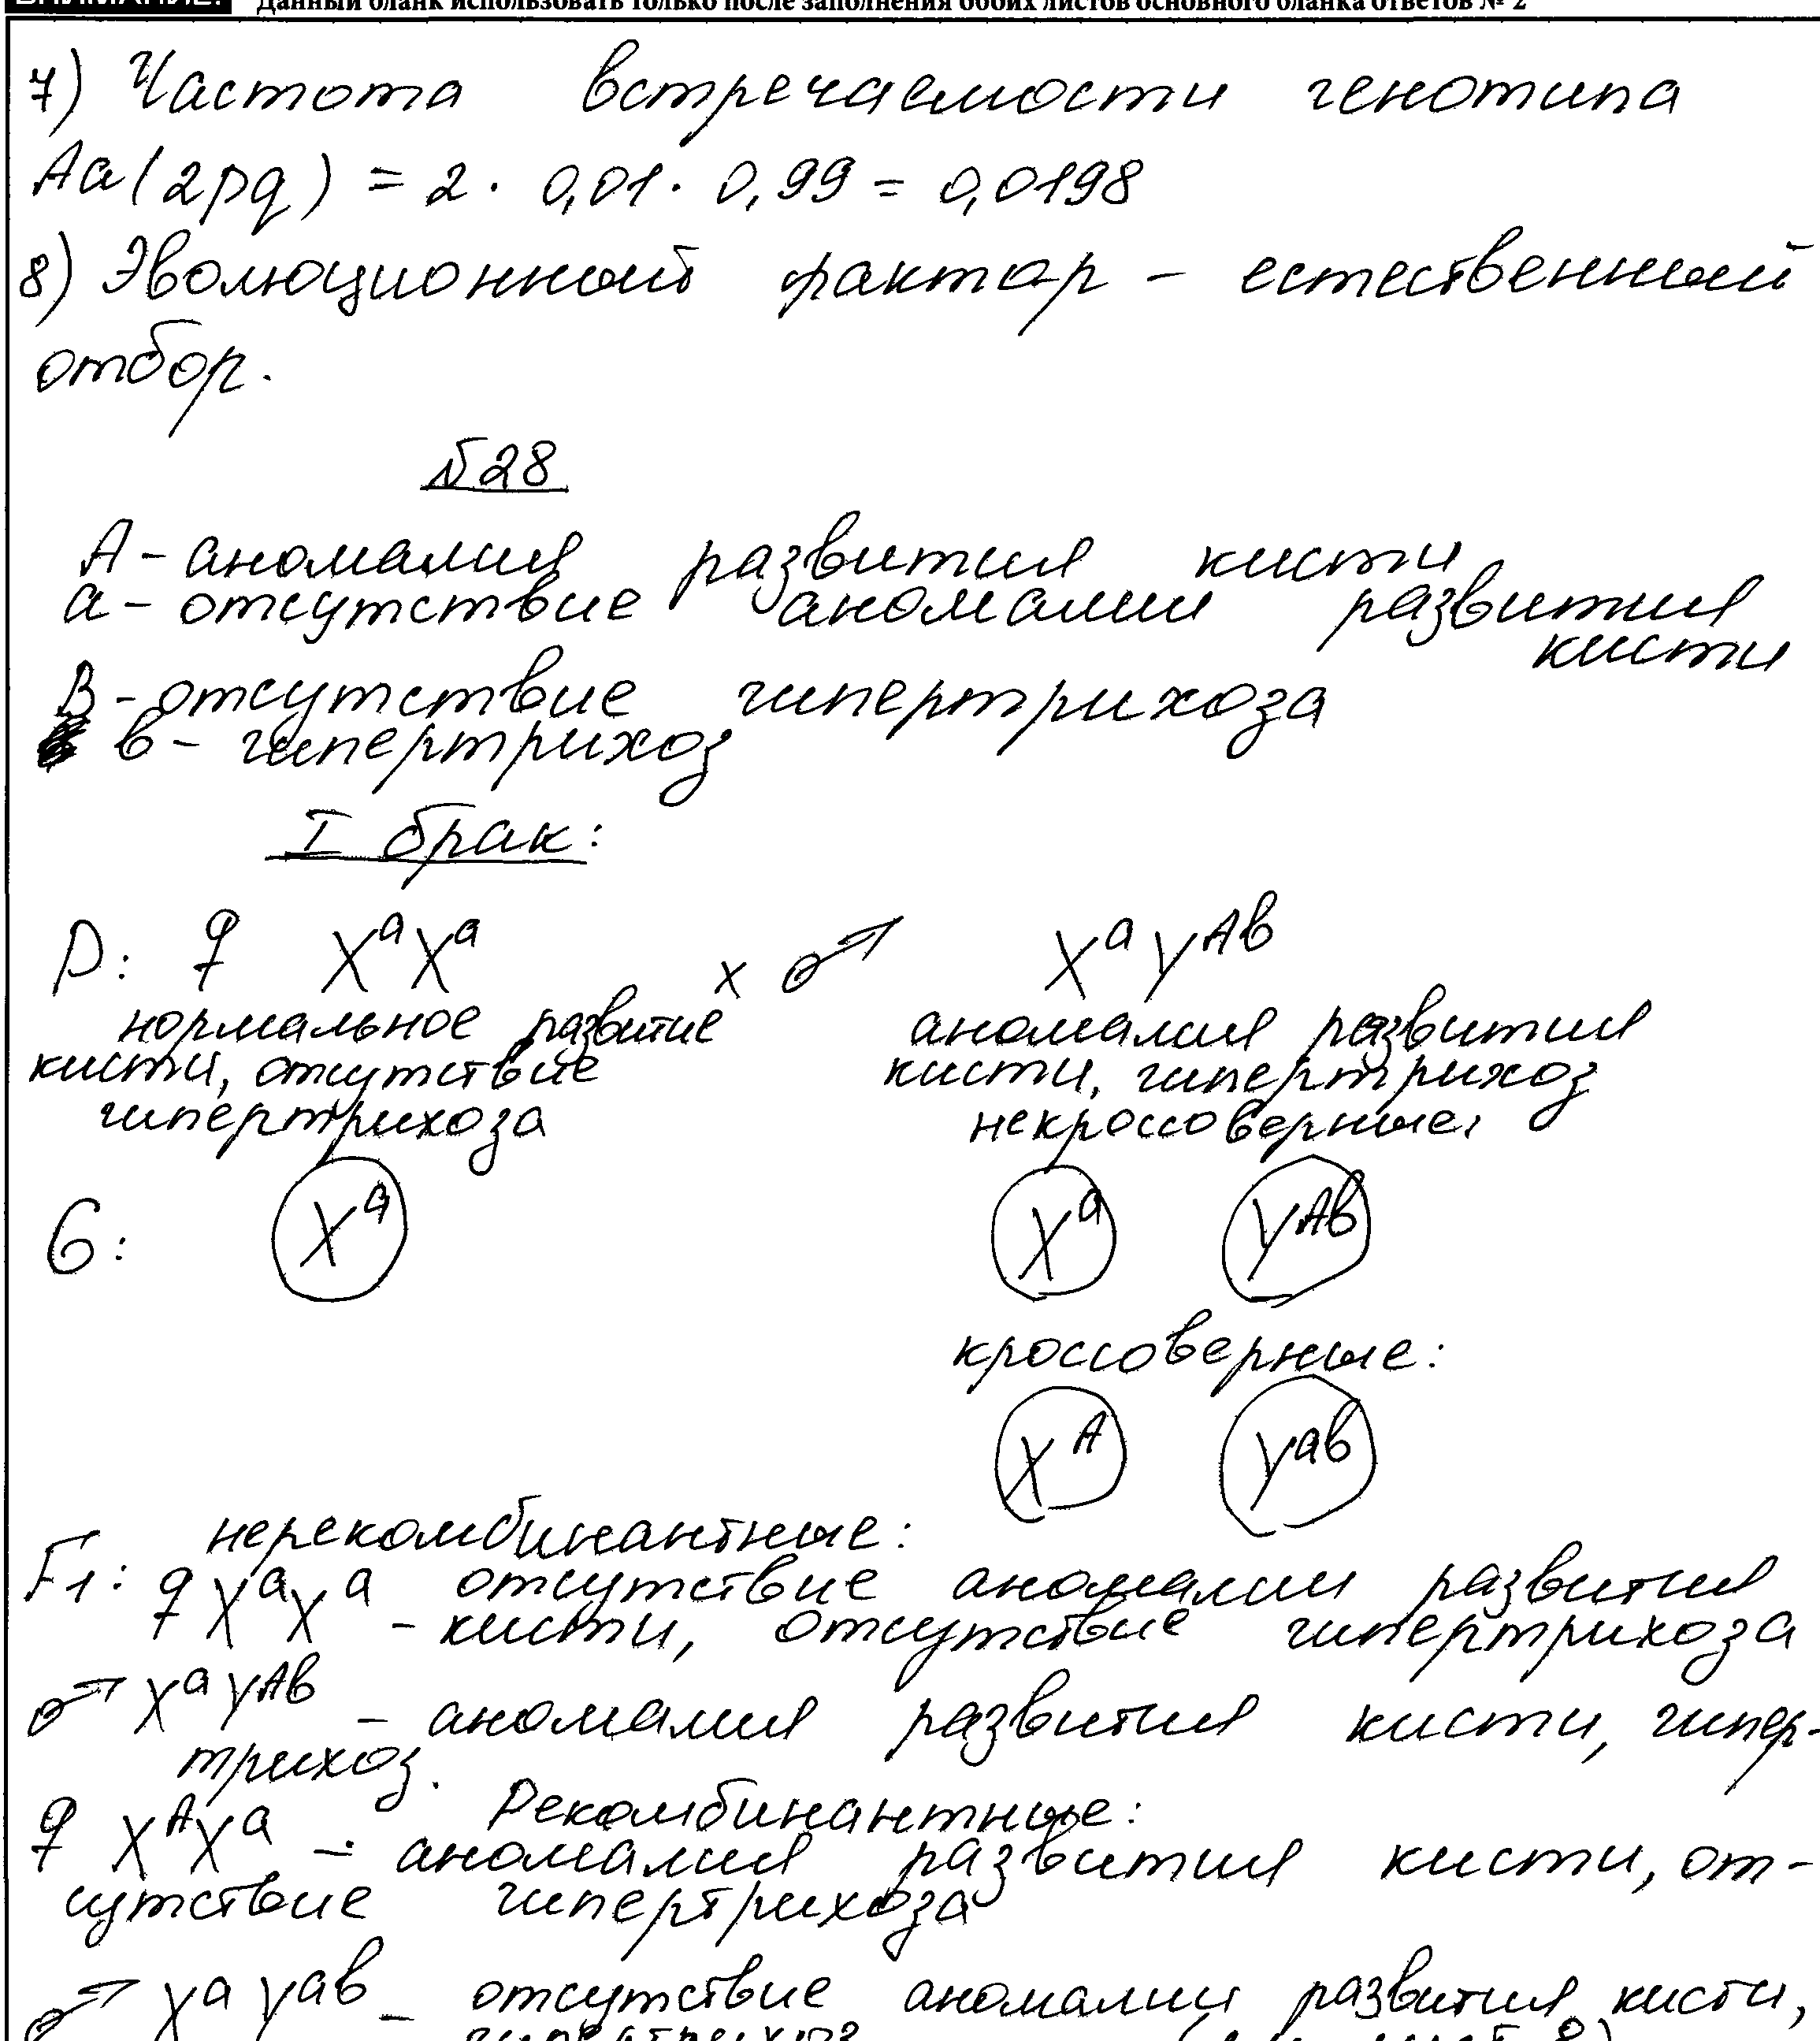 ВНИМАНИЕ! Данный бланк использовать только после заполнения обоих листов основного бланка ответов № 2
7) Частота встречаемости генотипа
Aa (2pq) = 2 · 0,01 · 0,99 = 0,0198
8) Эволюционный фактор – естественный
отбор.
№28
А – аномалия развития кисти
а – отсутствие аномалии развития
кисти
В – отсутствие гипертрихоза
в – гипертрихоз
I брак:
P: ♀ XᵃXᵃ x ♂ XᵃYᴬᵇ
нормальное развитие аномалия развития
кисти, отсутствие кисти, гипертрихоз
гипертрихоза некроссоверные:
G: Xᵃ Xᵃ Yᴬᵇ
кроссоверные:
Xᴬ Yᵃᵇ
нерекомбинантные:
F1: ♀ XᵃXᵃ – отсутствие аномалии развития
кисти, отсутствие гипертрихоза
♂ XᵃYᴬᵇ – аномалия развития кисти, гипер-
трихоз.
Рекомбинантные:
♀ XᴬXᵃ – аномалия развития кисти, от-
сутствие гипертрихоза
♂ XᵃYᵃᵇ – отсутствие аномалии развития кисти,